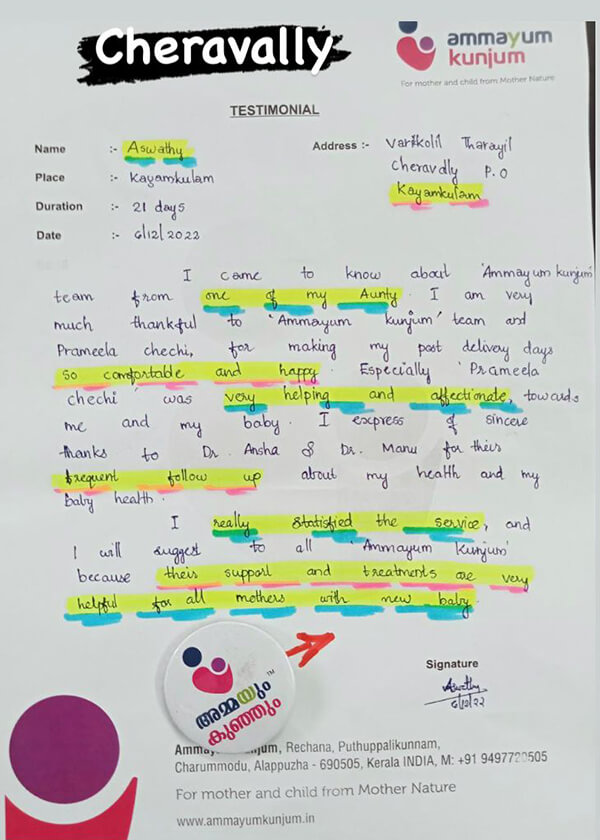 Cheravally
ammayum
kunjum
For mother and child from Mother Nature
TESTIMONIAL
Name :- Aswathy
Address :- Varikolil Tharayil
Cheravally P.O
Kayamkulam
Place :- Kayamkulam
Duration :- 21 days
Date :- 6/12/2022
I came to know about 'Ammayum kunjum'
team from one of my Aunty. I am very
much thankful to 'Ammayum kunjum' team and
Prameela chechi, for making my post delivery days
so comfortable and happy. Especially 'Prameela
chechi' was very helping and affectionate, towards
me and my baby. I express of sincere
thanks to Dr. Ansha & Dr. Manu for theis
frequent follow up about my health and my
baby health.
I really statisfied the service, and
I will suggest to all 'Ammayum Kunjum'
because theis support and treatments are very
helpful for all mothers with new baby.
Signature
Aswathy
6/12/22
TM
അമ്മയും
കുഞ്ഞും
Rechana, Puthuppalikunnam,
Charummodu, Alappuzha - 690505, Kerala INDIA, M: +91 9497720505
For mother and child from Mother Nature
www.ammayumkunjum.in